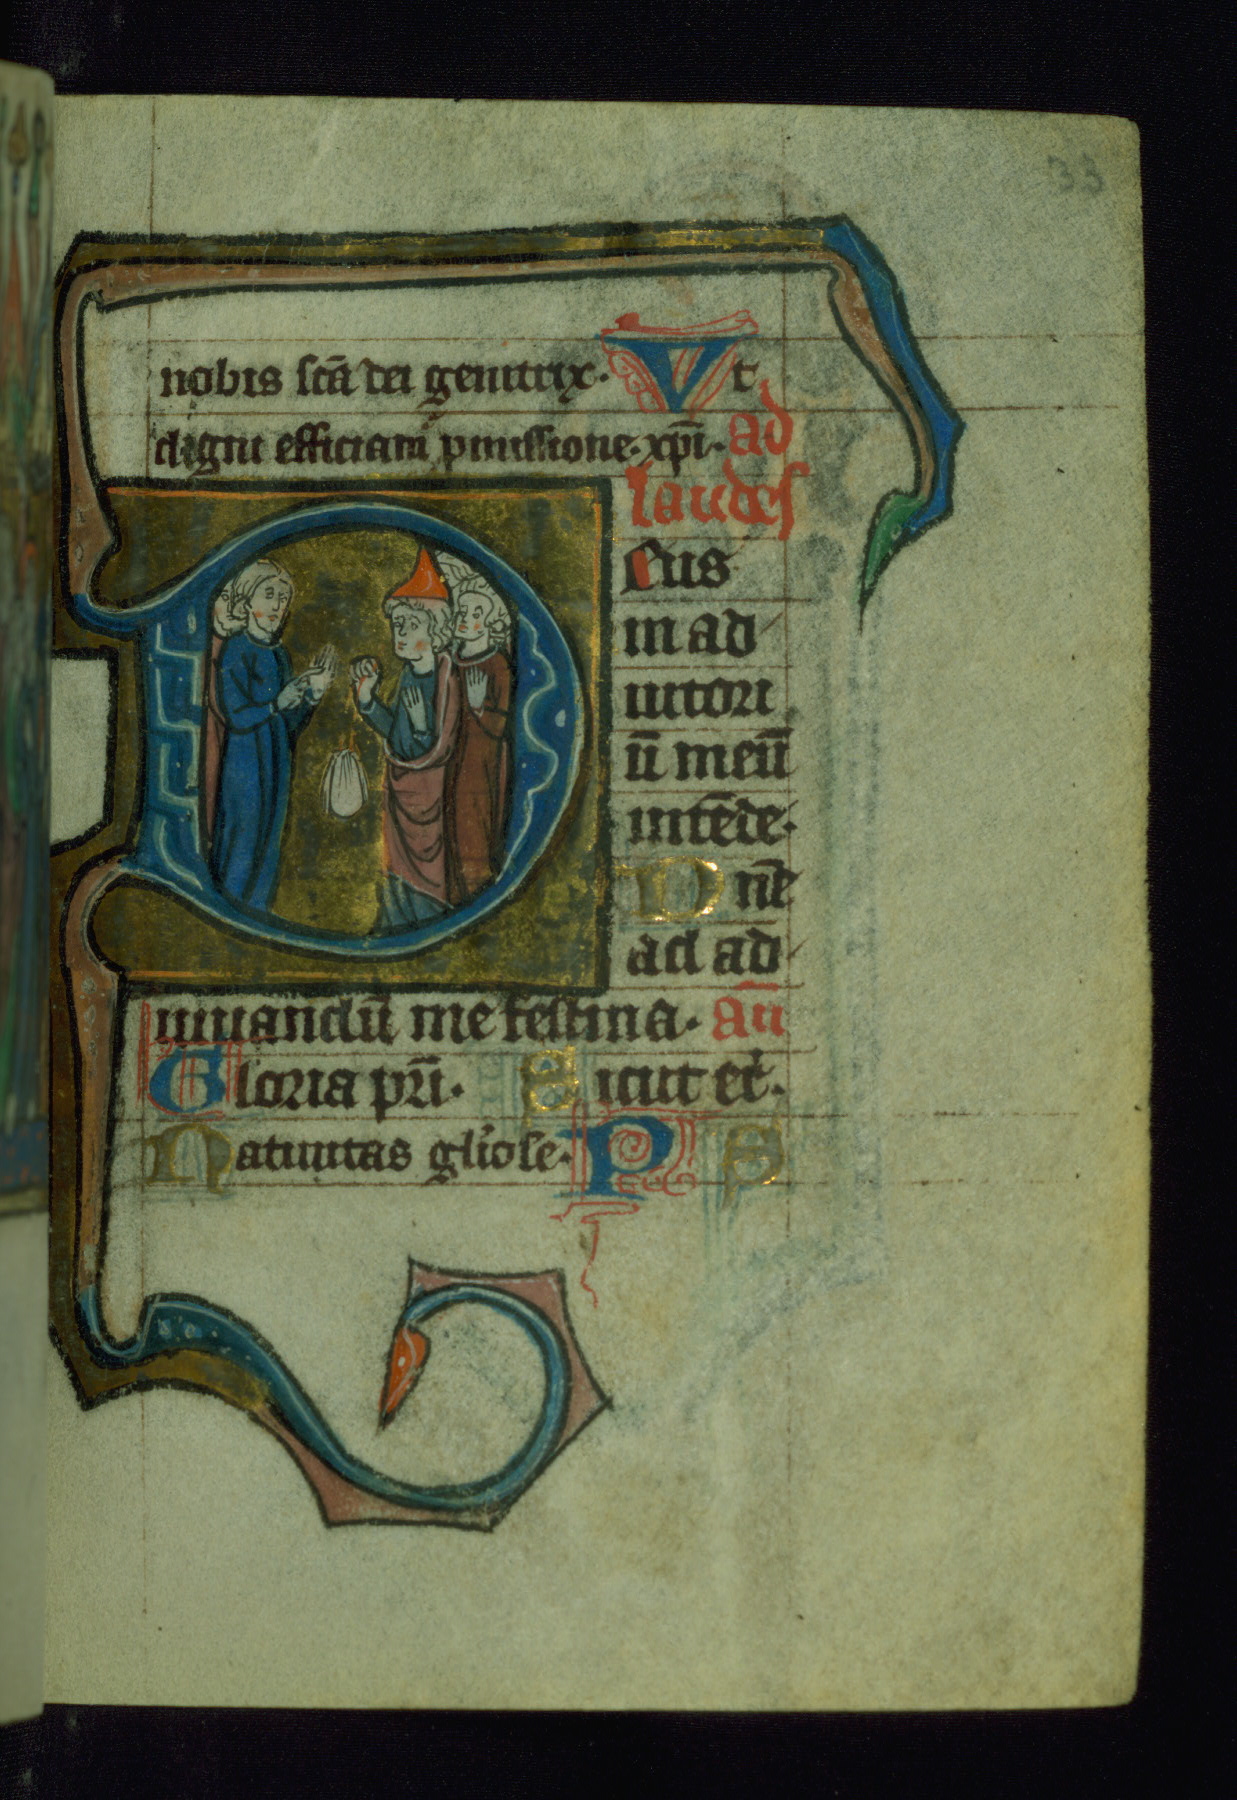 33
nobis scā dei genitrix. Vt
digni efficiam̄ pmissione. xp̄i. ad
laudes
Deus
in ad
iutori
ū meū
intēde.
Dnē
ad ad
iuuandū me festina. an̄
Gloria pr̄i. Sicut er̄.
Natiuitas gl̄iose. Ps S